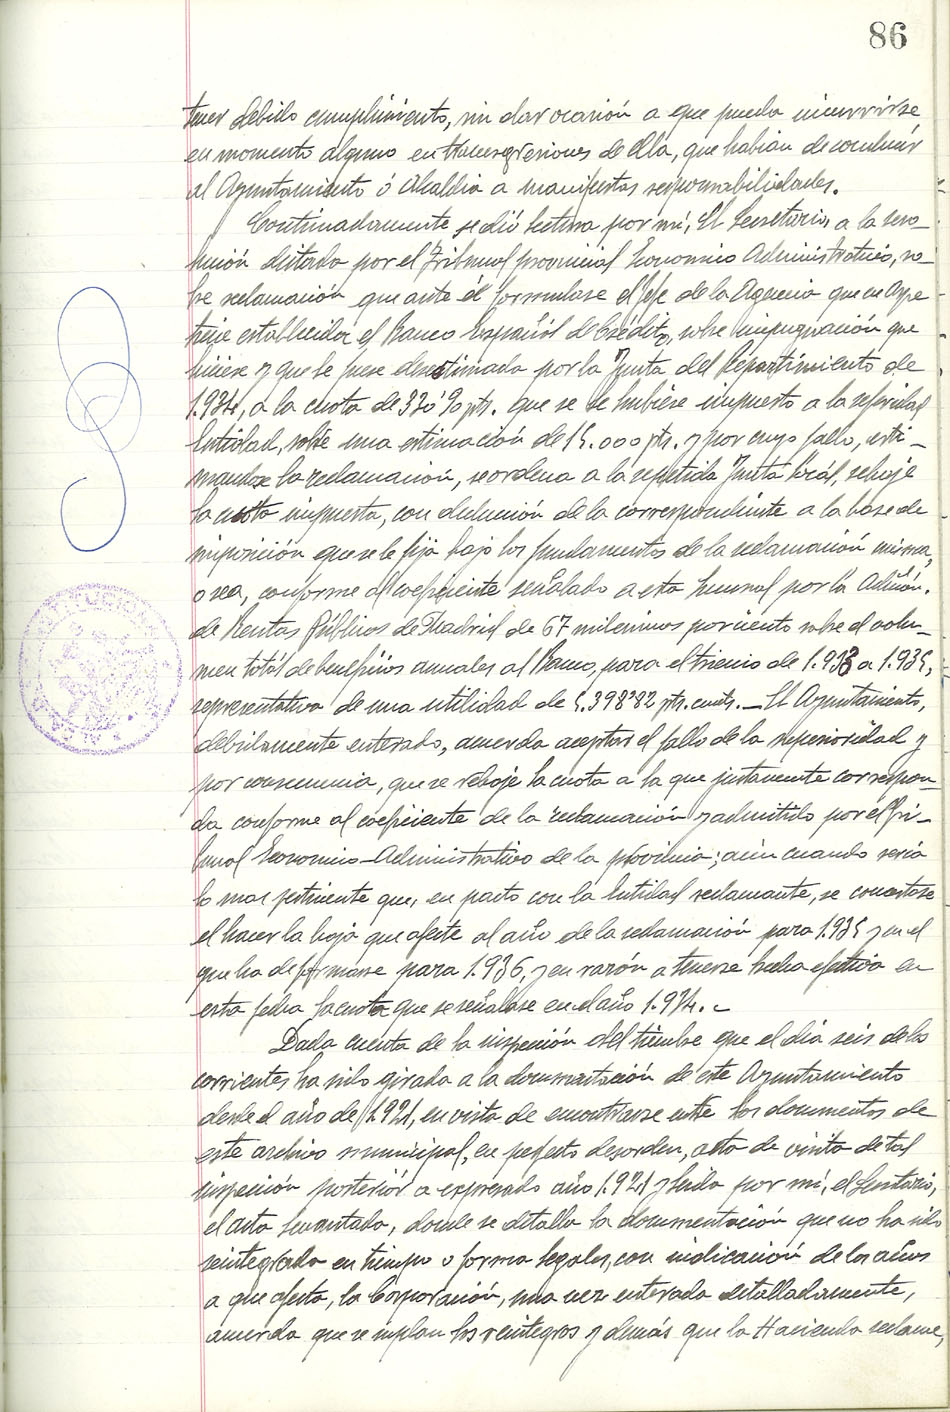 86
tener debido cumplimiento, sin dar ocasión a que pueda incurrirse
en momento alguno en transgresiones de ella, que habian de conducir
al Ayuntamiento ó Alcaldia a manifiestas responsabilidades.
Continuadamente se dió lectura por mí, El Secretario, a la reso-
lución dictada por el Tribunal provincial Economico Administrativo, so-
bre reclamación que ante él formulase el Jefe de la Agencia que en Aspe
tiene establecida el Banco Español de Crédito, sobre impugnación que
hiciese y que le fuese desestimada por la Junta del Repartimiento de
1.934, a la cuota de 330'90 pts. que se le hubiese impuesto a la referida
Entidad, sobre una estimación de 15.000 pts. y por cuyo fallo, esti-
mandose la reclamación, se ordena a la repetida Junta local, rebaje
la cuota impuesta, con deducción de la correspondiente a la base de
imposición que se le fija bajo los fundamentos de la reclamación misma,
o sea, conforme al coeficiente señalado a esta Sucursal por la Admón.
de Rentas Públicas de Madrid de 67 milesimas por ciento sobre el volu-
men total de beneficios anuales al Banco, para el trienio de 1.933 a 1.935,
representativa de una utilidad de 5.398'82 pts. cents. - El Ayuntamiento,
debidamente enterado, acuerda aceptar el fallo de la superioridad y
por consecuencia, que se rebaje la cuota a la que justamente correspon-
da conforme al coeficiente de la reclamación y admitido por el Tri-
bunal Economico-Administrativo de la provincia; aún cuando sería
lo mas pertinente que, en pacto con la Entidad reclamante, se concertase
el hacer la baja que afecte al año de la reclamación para 1.935 y en el
que ha de formarse para 1.936, y en razón a tenerse hecha efectiva en
esta fecha la cuota que se señalase en el año 1.934. -
Dada cuenta de la inspección del timbre que el día seis de los
corrientes ha sido girada a la documentación de este Ayuntamiento
desde el año de 1.921, en vista de encontrarse entre los documentos de
este archivo municipal, en perfecto desorden, acta de visita de tal
inspección posterior a expresado año 1.921 y leida por mí, el Secretario,
el acta levantada, donde se detalla la documentación que no ha sido
reintegrada en tiempo o forma legales, con indicación de los años
a que afecta, la Corporación, una vez enterada detalladamente,
acuerda que se cumplan los reintegros y demás que la Hacienda reclame,